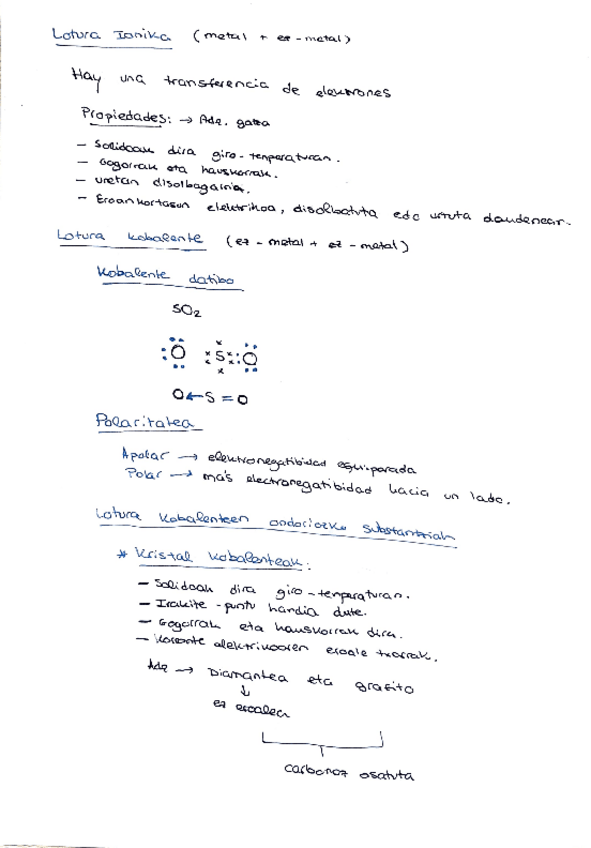 Lotura Ionika (metal + ez-metal)
Hay una transferencia de elektrones
Propiedades: → Adz. gatza
- Solidoak dira giro-tenperaturan.
- Gogorrak eta hauskorrak.
- uretan disolbagarria.
- Eroankortasun elektrikoa, disolbatuta edo urtuta daudenean.
Lotura kobalente (ez-metal + ez-metal)
Kobalente datibo
SO2
O S O
O←S=O
Polaritatea
Apolar → elektronegatibidad equiparada
Polar → más electronegatibidad hacia un lado.
Lotura kobalenteen ondoriozko substantziak
* Kristal kobalenteak:
- Solidoak dira giro-tenperaturan.
- Irakite-puntu handia dute.
- Gogorrak eta hauskorrak dira.
- Korronte elektrikoaren eroale txarrak.
Adz → Diamantea eta grafito
↓
ez eroalea
carbonoz osatuta